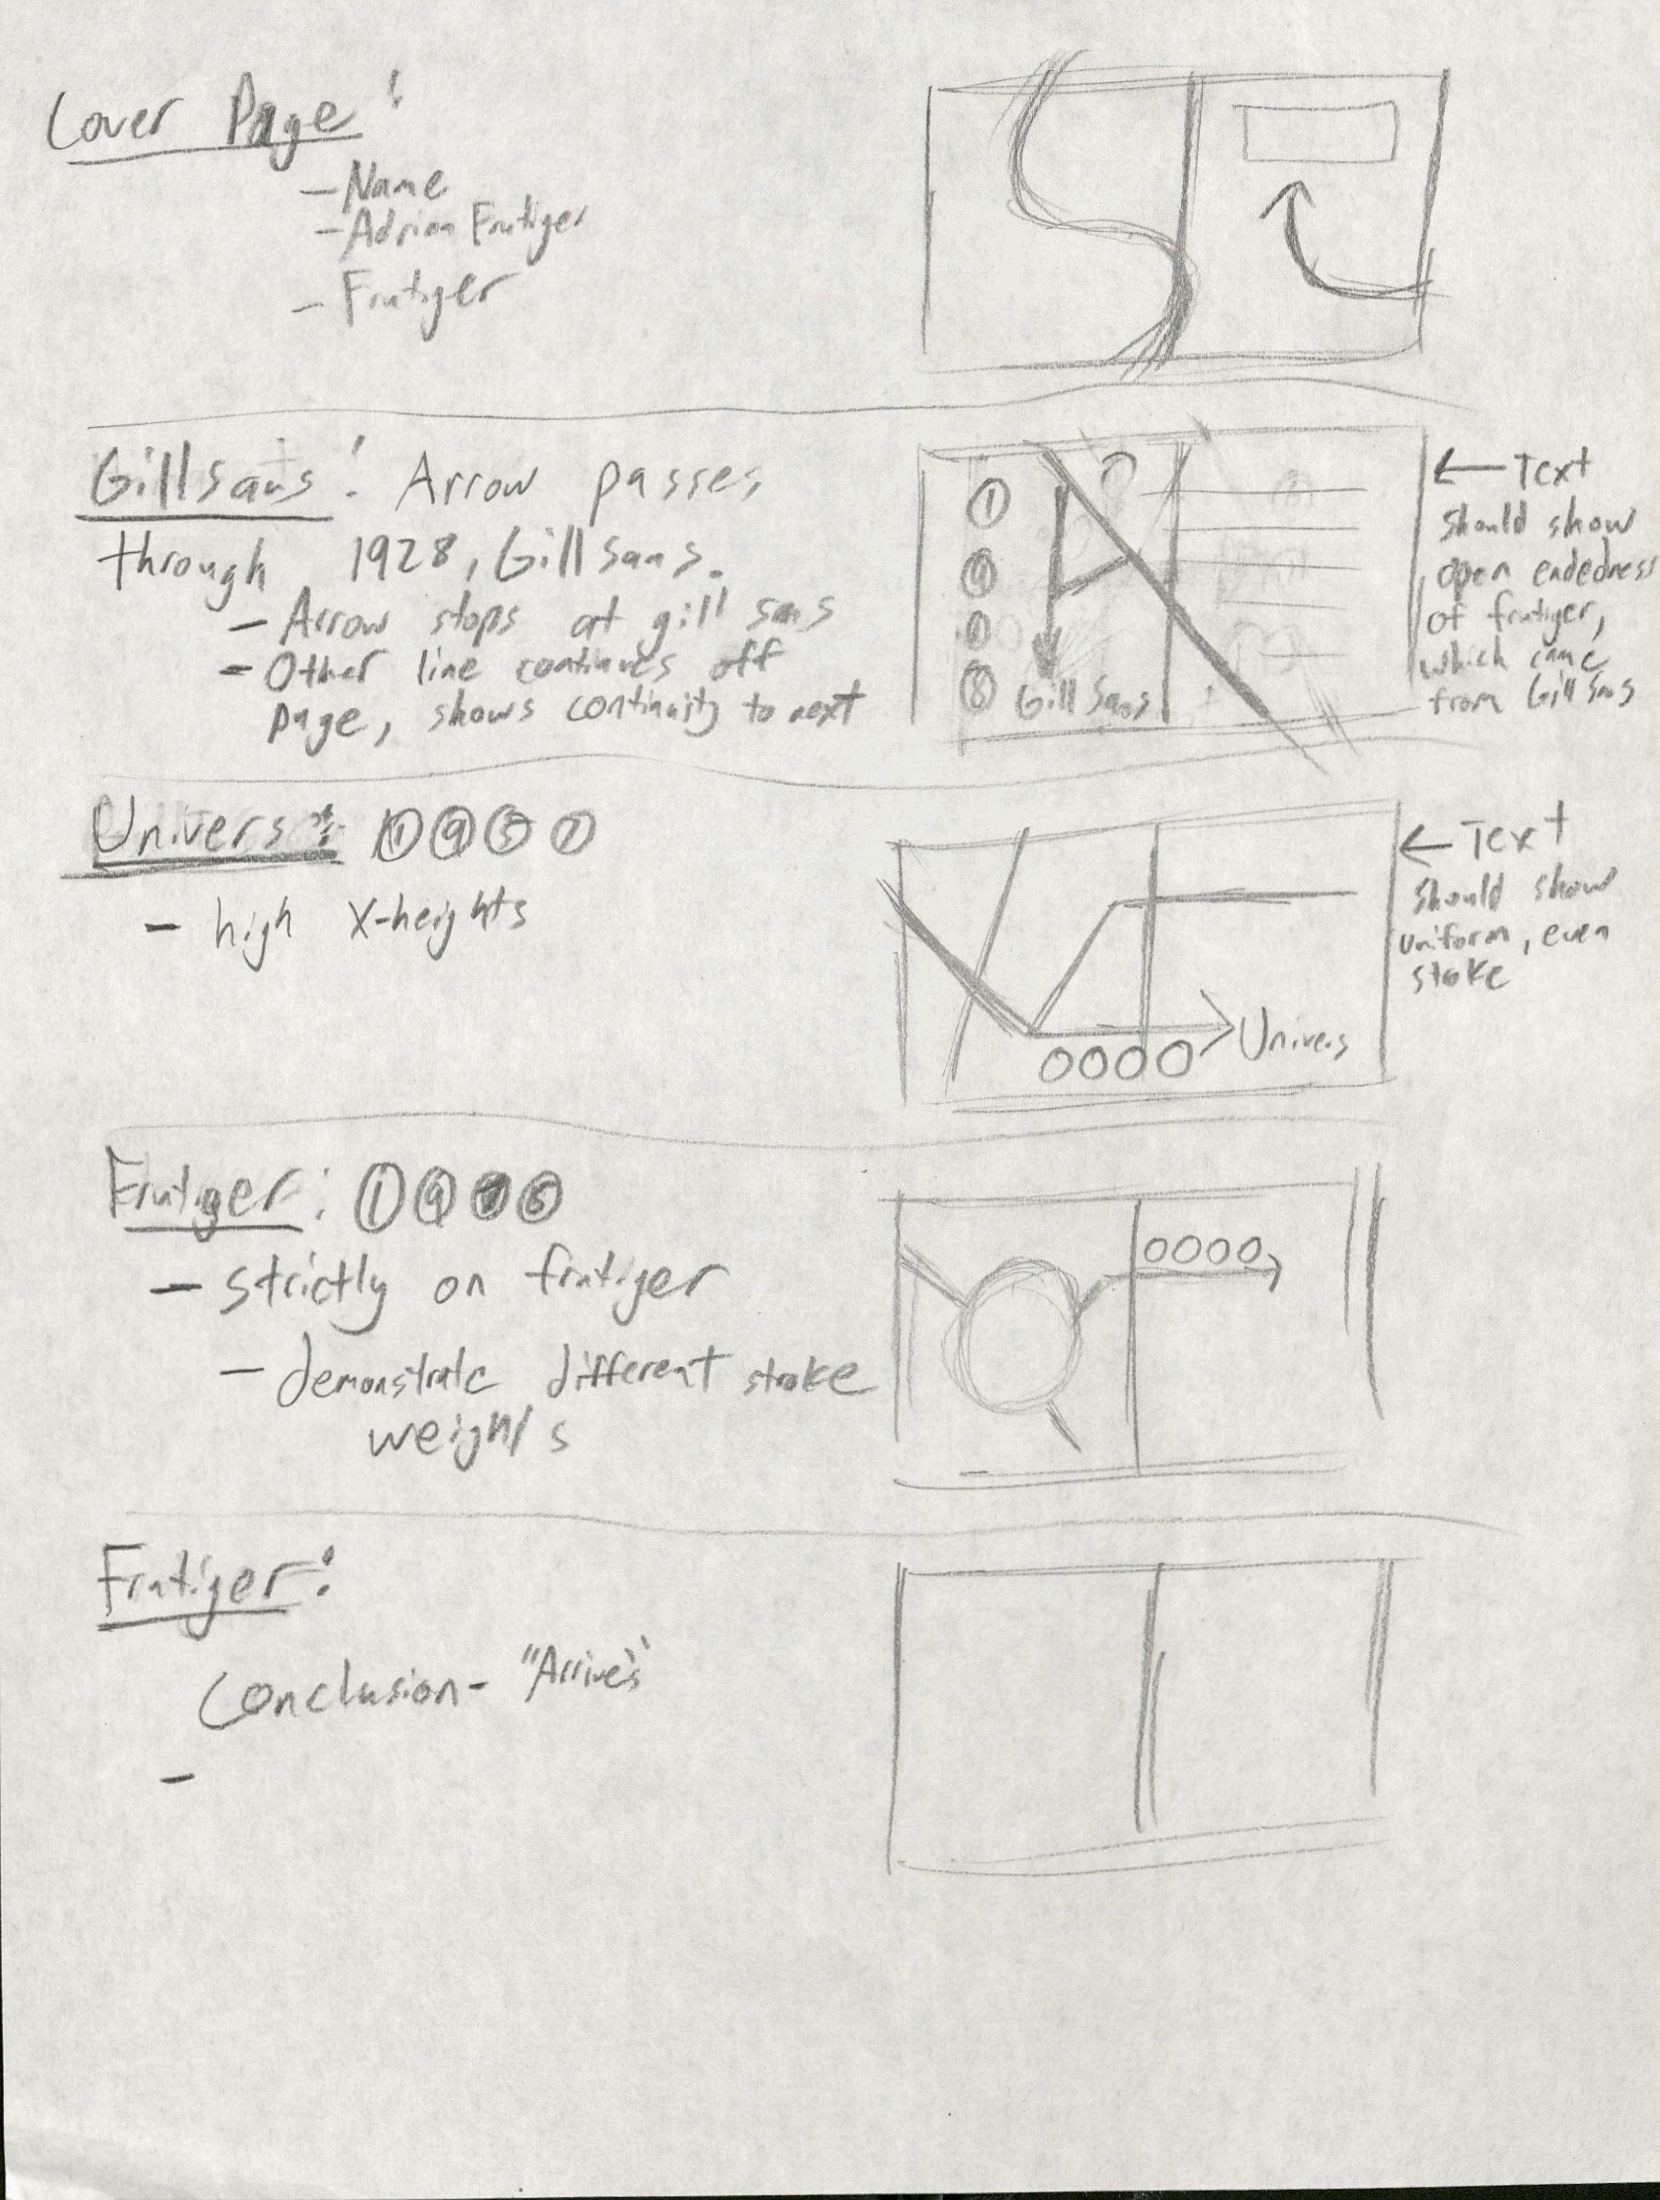 Cover Page:
- Name
- Adrian Frutiger
- Frutiger
Gillsans: Arrow passes
through 1928, Gill Sans.
- Arrow stops at gill sans
- Other line continues off
page, shows continuity to next
1
9
8
Gill Sans
← Text
Should show
open endedness
of frutiger,
which came
from Gill Sans
Univers: 1 9 5 7
- high x-heights
OOOO → Univers
← Text
Should show
uniform, even
stoke
Frutiger: 1 9 7 6
- strictly on frutiger
- demonstrate different stroke
weights
OOOO
Frutiger:
Conclusion- "Arrives"
-